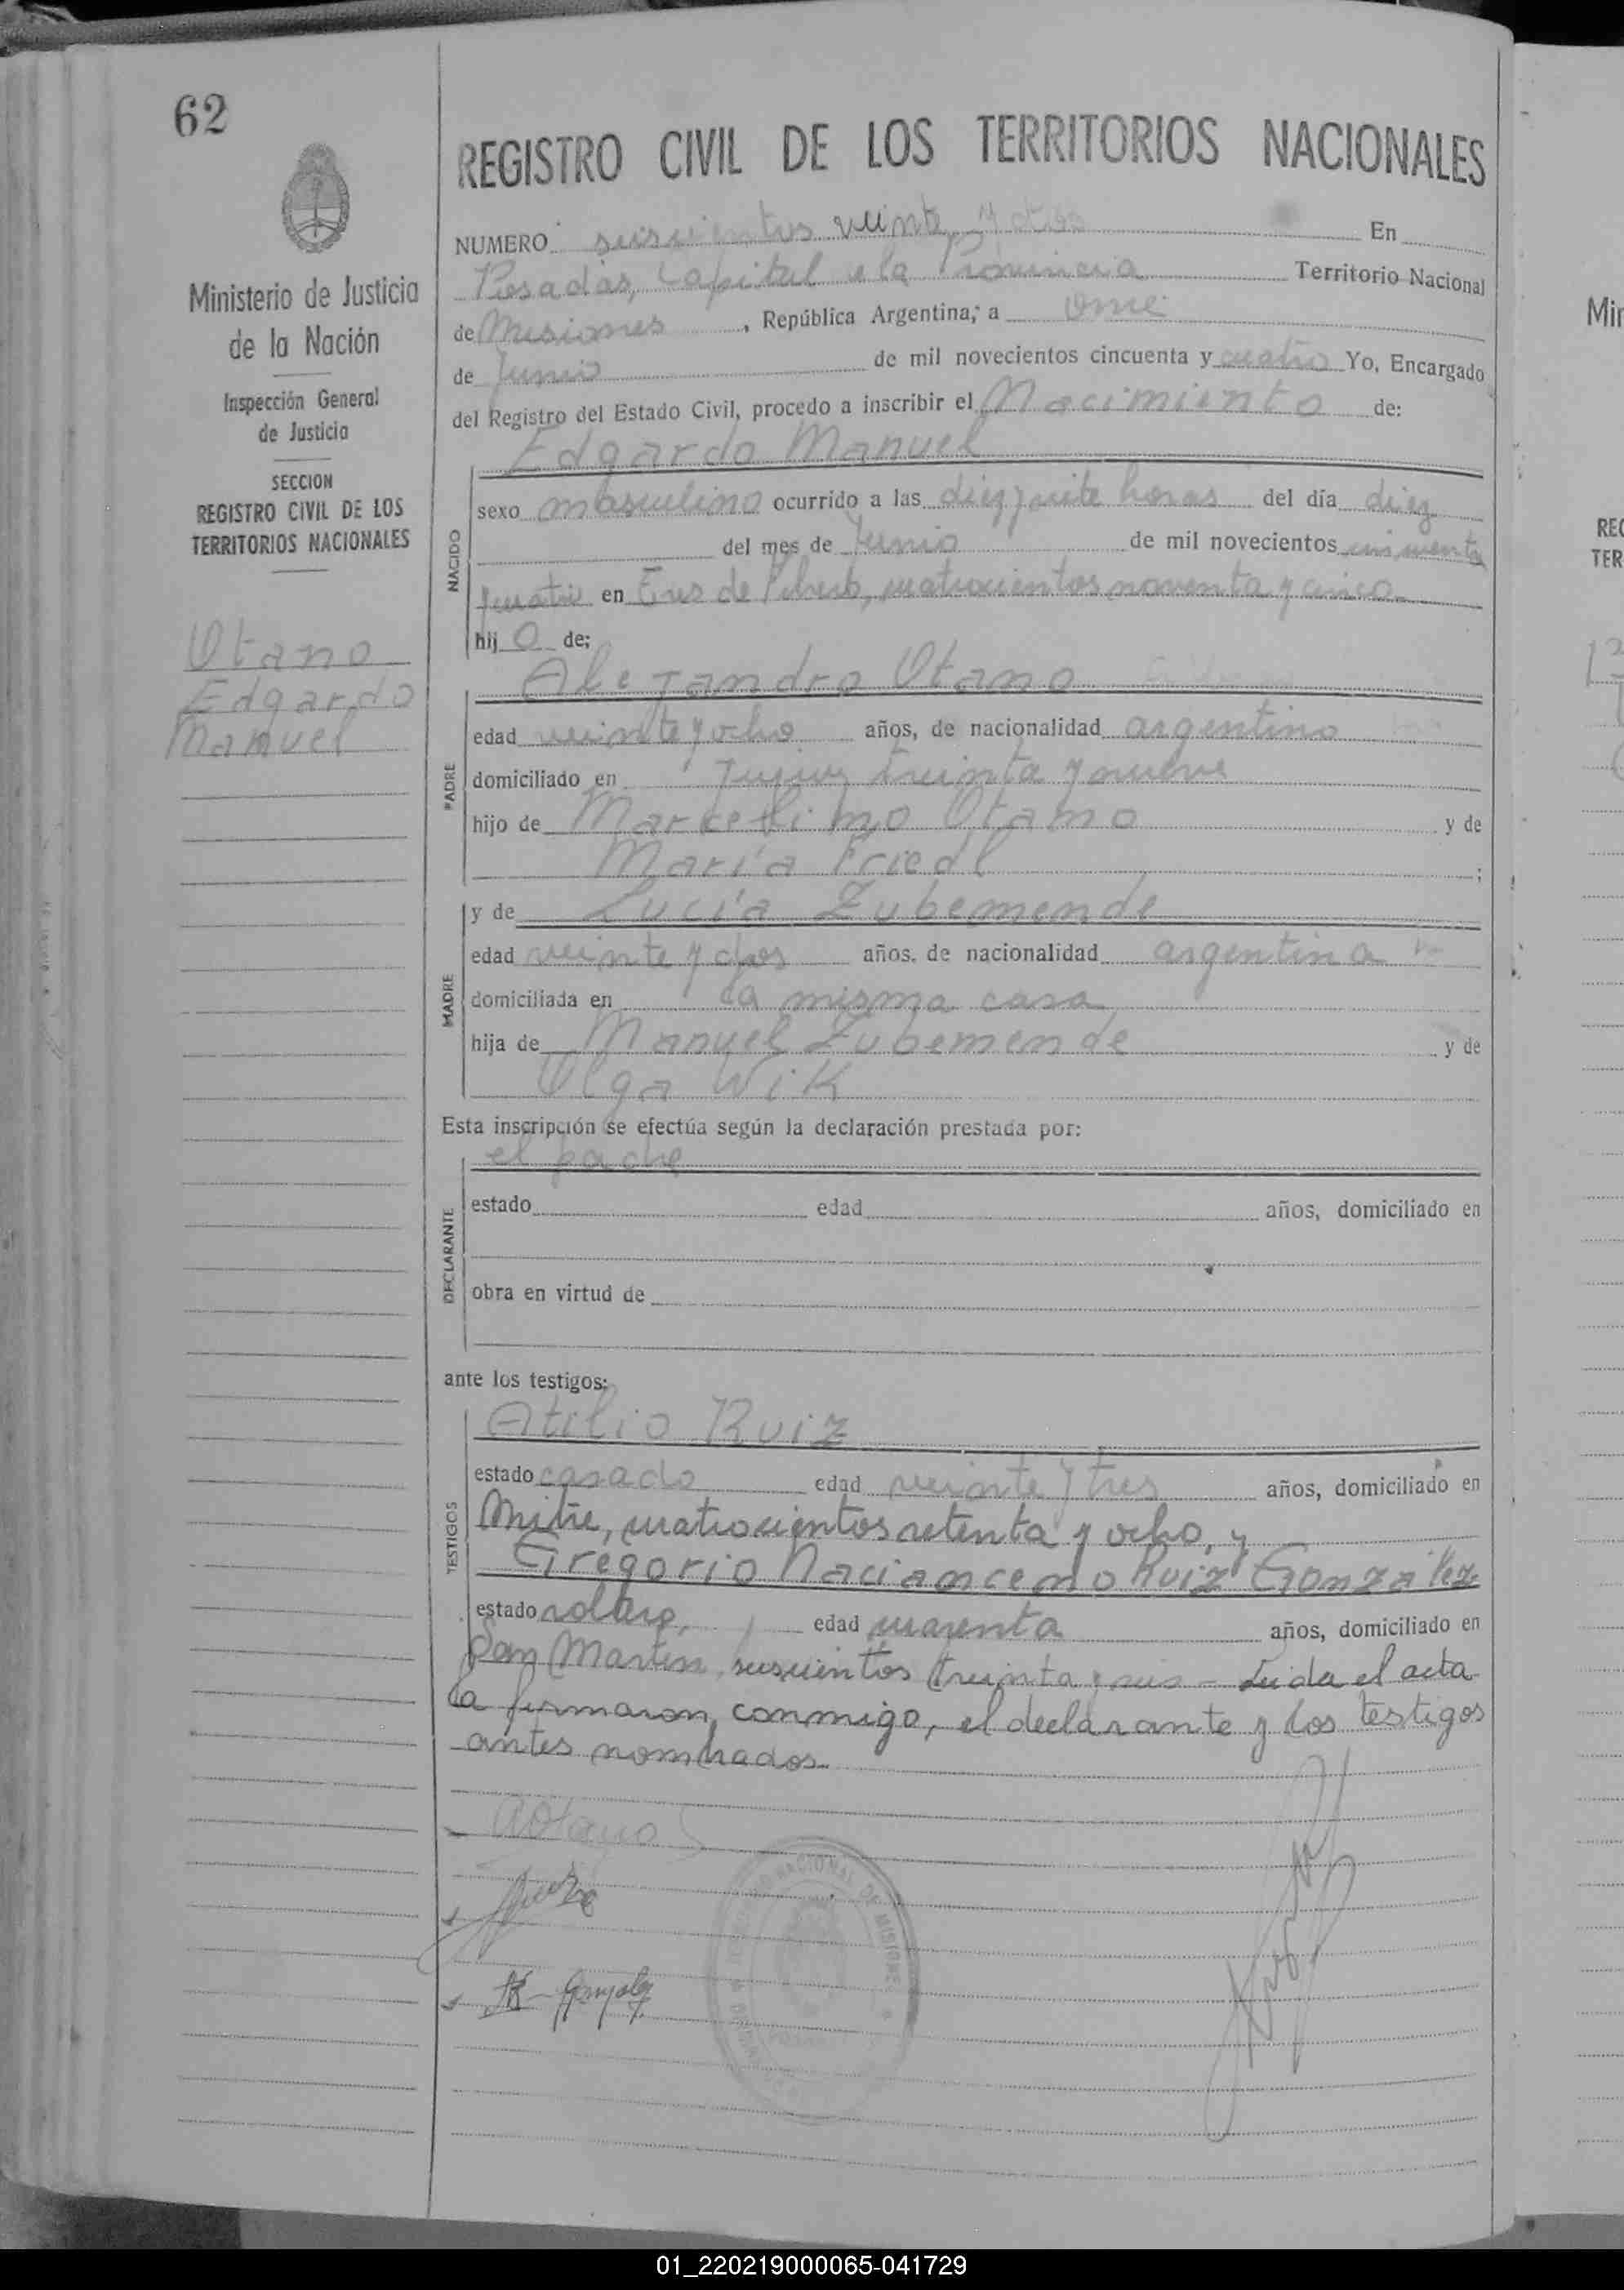 62
REGISTRO CIVIL DE LOS TERRITORIOS NACIONALES
Ministerio de Justicia
de la Nación
Inspección General
de Justicia
SECCION
REGISTRO CIVIL DE LOS
TERRITORIOS NACIONALES
Otano
Edgardo
Manuel
NUMERO seiscientos veinte y En
Posadas, Capital de la Provincia Territorio Nacional
de Misiones, República Argentina, a once
de Junio de mil novecientos cincuenta y cuatro Yo, Encargado
del Registro del Estado Civil, procedo a inscribir el Nacimiento de:
Edgardo Manuel
NACIDO
sexo masculino ocurrido a las diez y siete horas del día diez
del mes de Junio de mil novecientos cincuenta
y cuatro en Tres de Febrero, cuatrocientos noventa y cinco
hij o de;
Alejandro Otano
PADRE
edad veinte y ocho años, de nacionalidad argentino
domiciliado en Jujuy treinta y nueve
hijo de Marcelino Otano y de
María Friedl ;
y de Lucía Zubemende
MADRE
edad veinte y dos años, de nacionalidad argentina
domiciliada en la misma casa
hija de Manuel Zubemende y de
Olga Wik
Esta inscripción se efectúa según la declaración prestada por:
el padre
DECLARANTE
estado edad años, domiciliado en
obra en virtud de
ante los testigos:
Atilio Ruiz
TESTIGOS
estado casado edad veinte y tres años, domiciliado en
Mitre, cuatrocientos setenta y ocho, y
Gregorio Nacianceno Ruiz González
estado soltero, edad cuarenta años, domiciliado en
San Martín, seiscientos treinta y seis - Leida el acta
la firmaron, conmigo, el declarante y los testigos
antes nombrados.-
AOtano
González
NACIONAL DE MISIONES
01_220219000065-041729